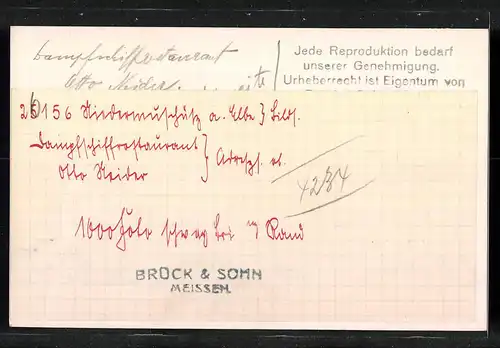 Dampfschiffrestaurant
Otto Neider
Jede Reproduktion bedarf
unserer Genehmigung.
Urheberrecht ist Eigentum von
26156 Niedermuschütz a. Elbe } Bilds.
Dampfschiffrestaurant } Adressz. et.
Otto Neider
4234
1000 Foto schwarz bis m Rand
BRÜCK & SOHN
MEISSEN.